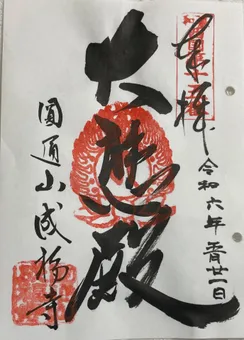 奉拝
令和六年一月廿一日
大悲殿
圓通山成福寺